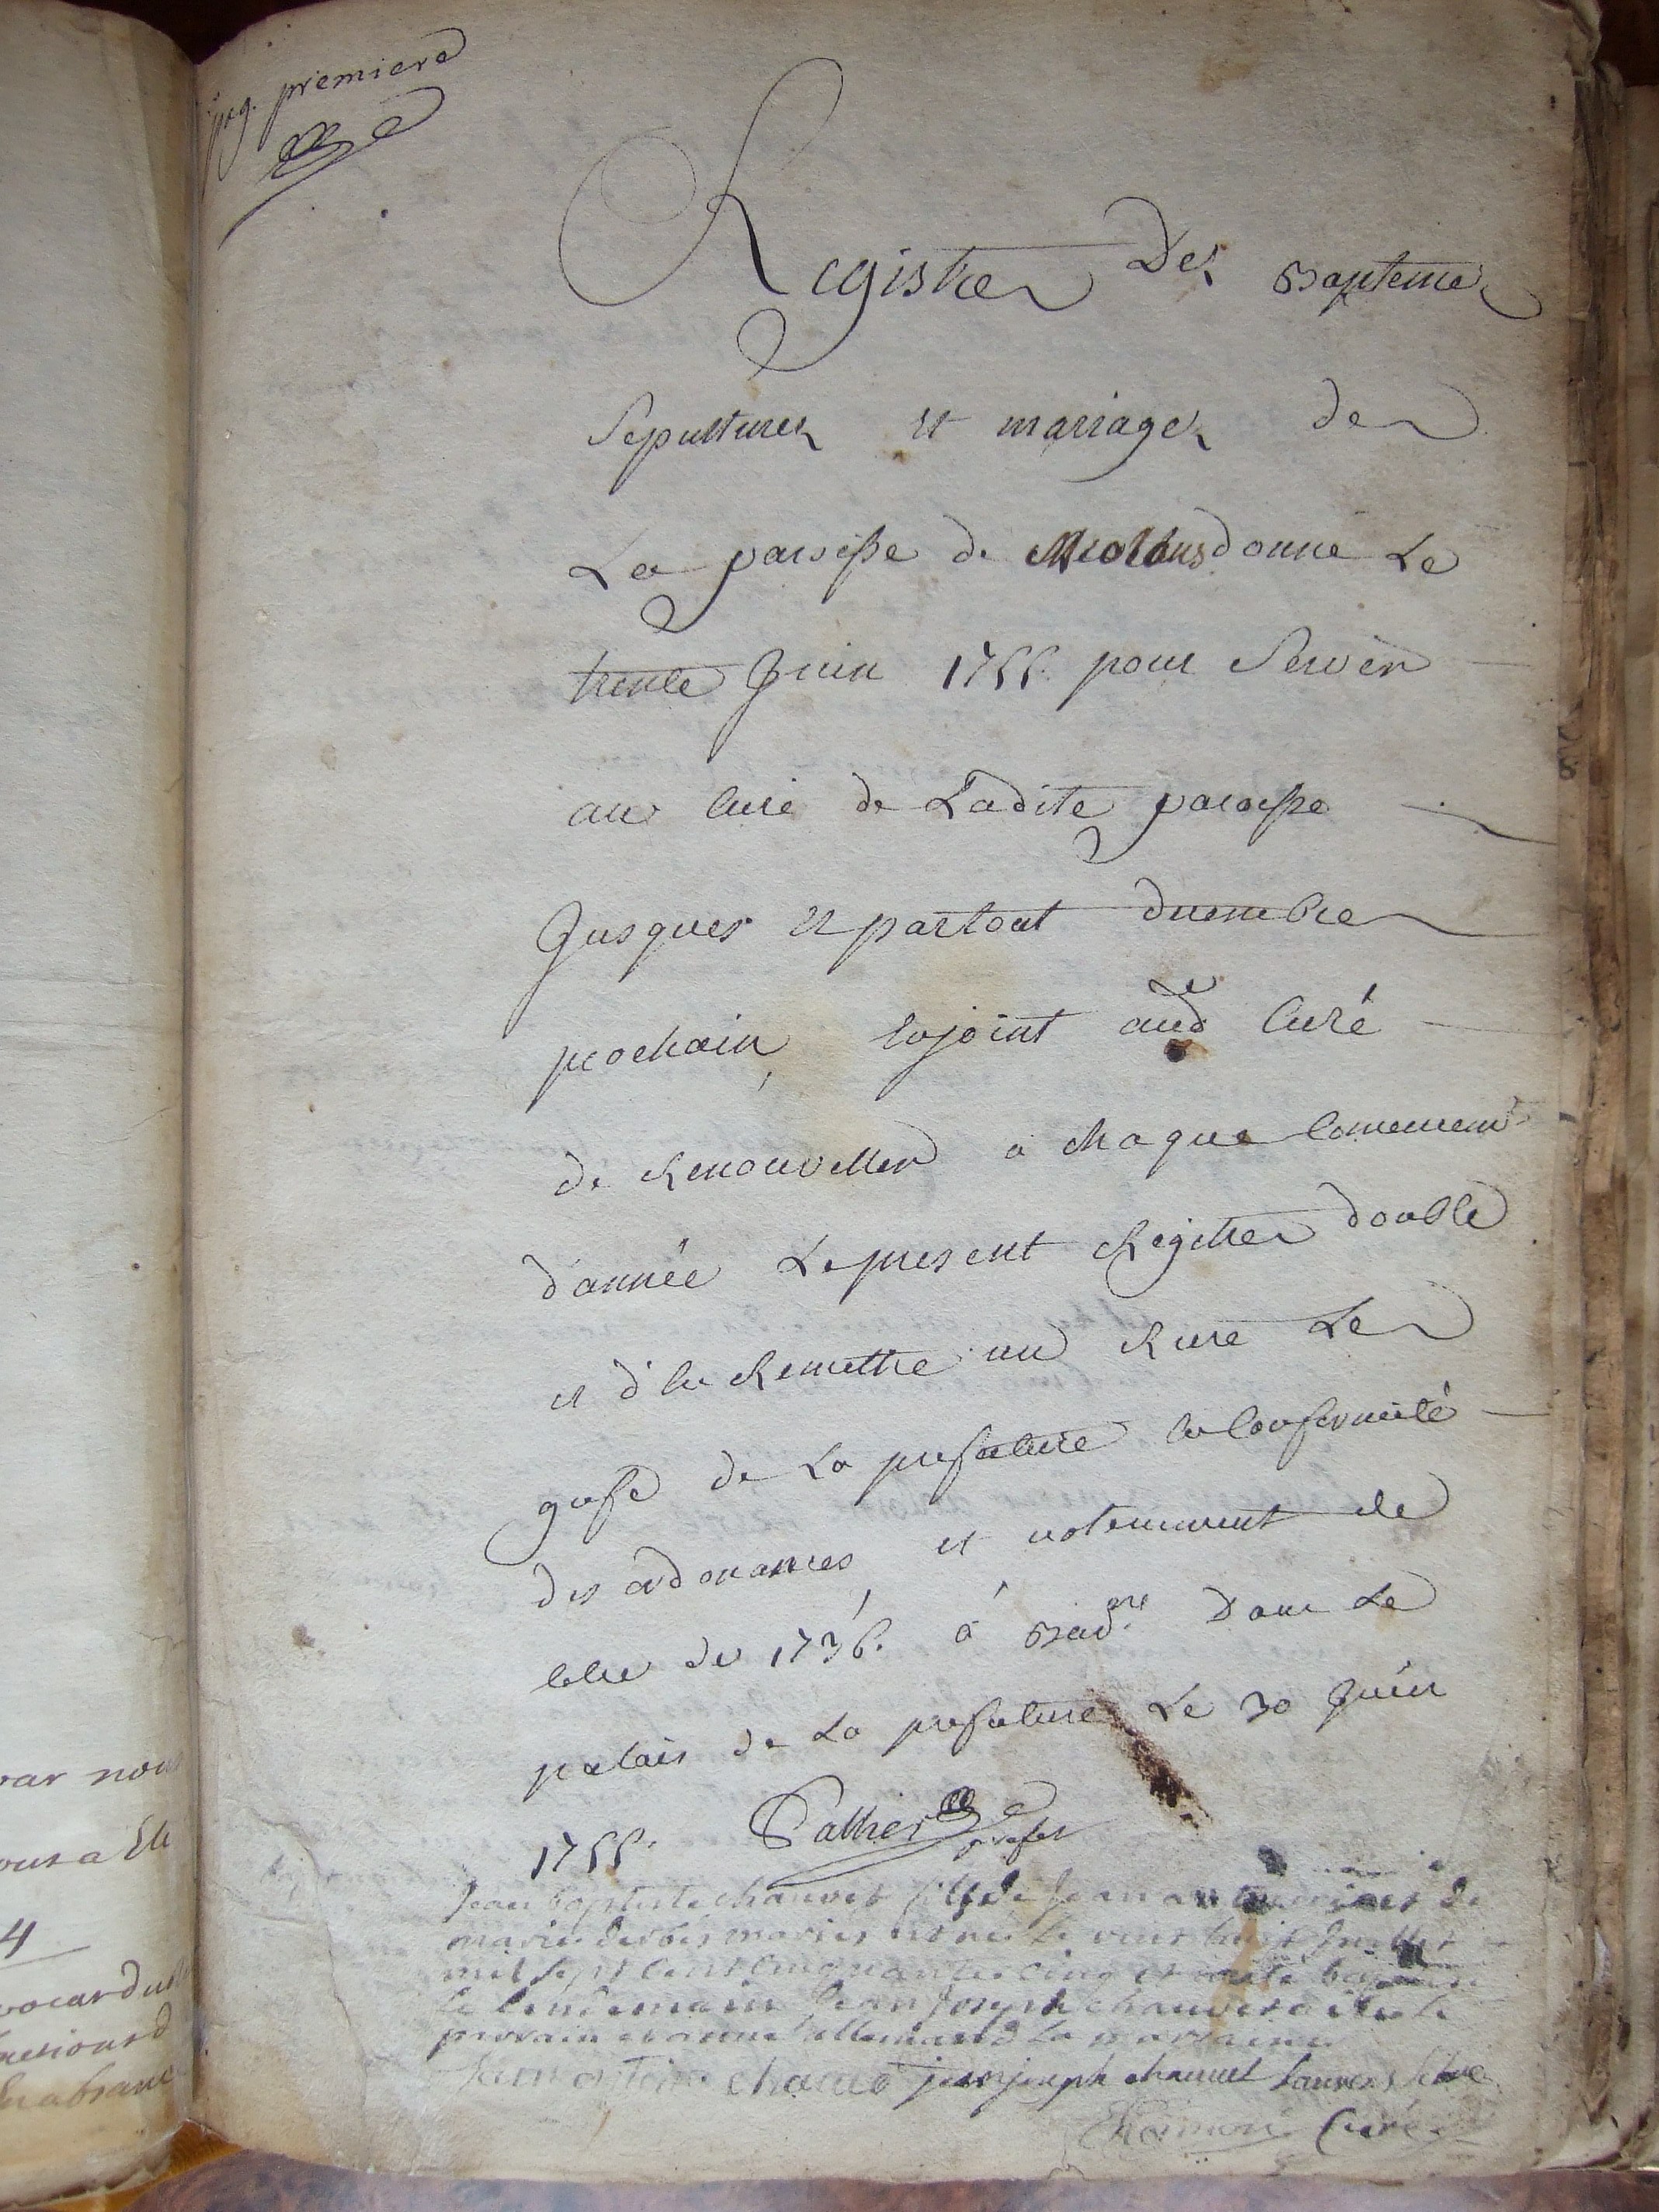 pag. premiere
Registre Des Baptemes
Sepultures et mariages de
La paroisse de Meolans donné Le
trente Juin 1755. pour Servir
au Curé de Ladite paroisse
Jusques et partout decembre
prochain, Enjoint aud Curé
de Renouveller a chaque Commencemt
d'année Le present Registre double
et d'en Remettre un Riere Le
greffe de La prefecture en Conformité
des ordonances et notemment de
Celle de 1736. á Bar dans Le
palais de La prefecture Le 30 Juin
1755.
prefet
Jean baptiste chauvet fils de Jean antoine et de
marie derbes mariés est né le vint huit Juillet
mil sept Cent Cinquante cinq et a été baptisé
le lendemain Jean Joseph chauvet a été le
parrain et anne allemand La marraine
Jean antoine chauvet jean joseph chauvet
Curé
par nous
4